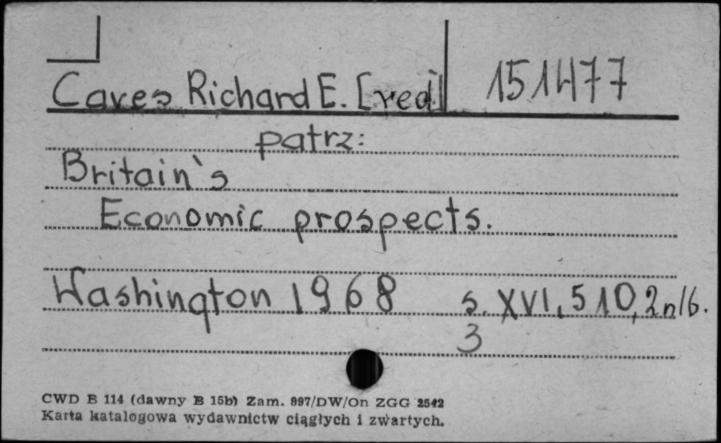 Caves Richard E. [red] 151477
patrz:
Britain's
Economic prospects.
Washington 1968 s. XVI, 510, 2nlb.
3
CWD B 114 (dawny B 15b) Zam. 897/DW/On ZGG 2542
Karta katalogowa wydawnictw ciągłych i zwartych.